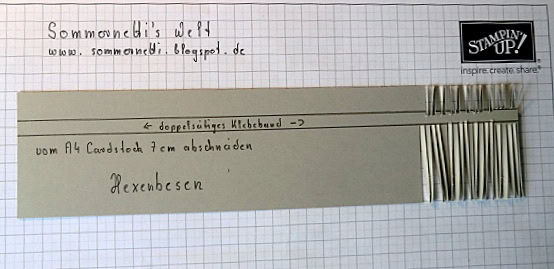 Sommernetti's Welt
www.sommernetti.blogspot.de
STAMPIN' UP!
inspire.create.share.®
<- doppelseitiges Klebeband ->
vom A4 Cardstock 7 cm abschneiden
Hexenbesen